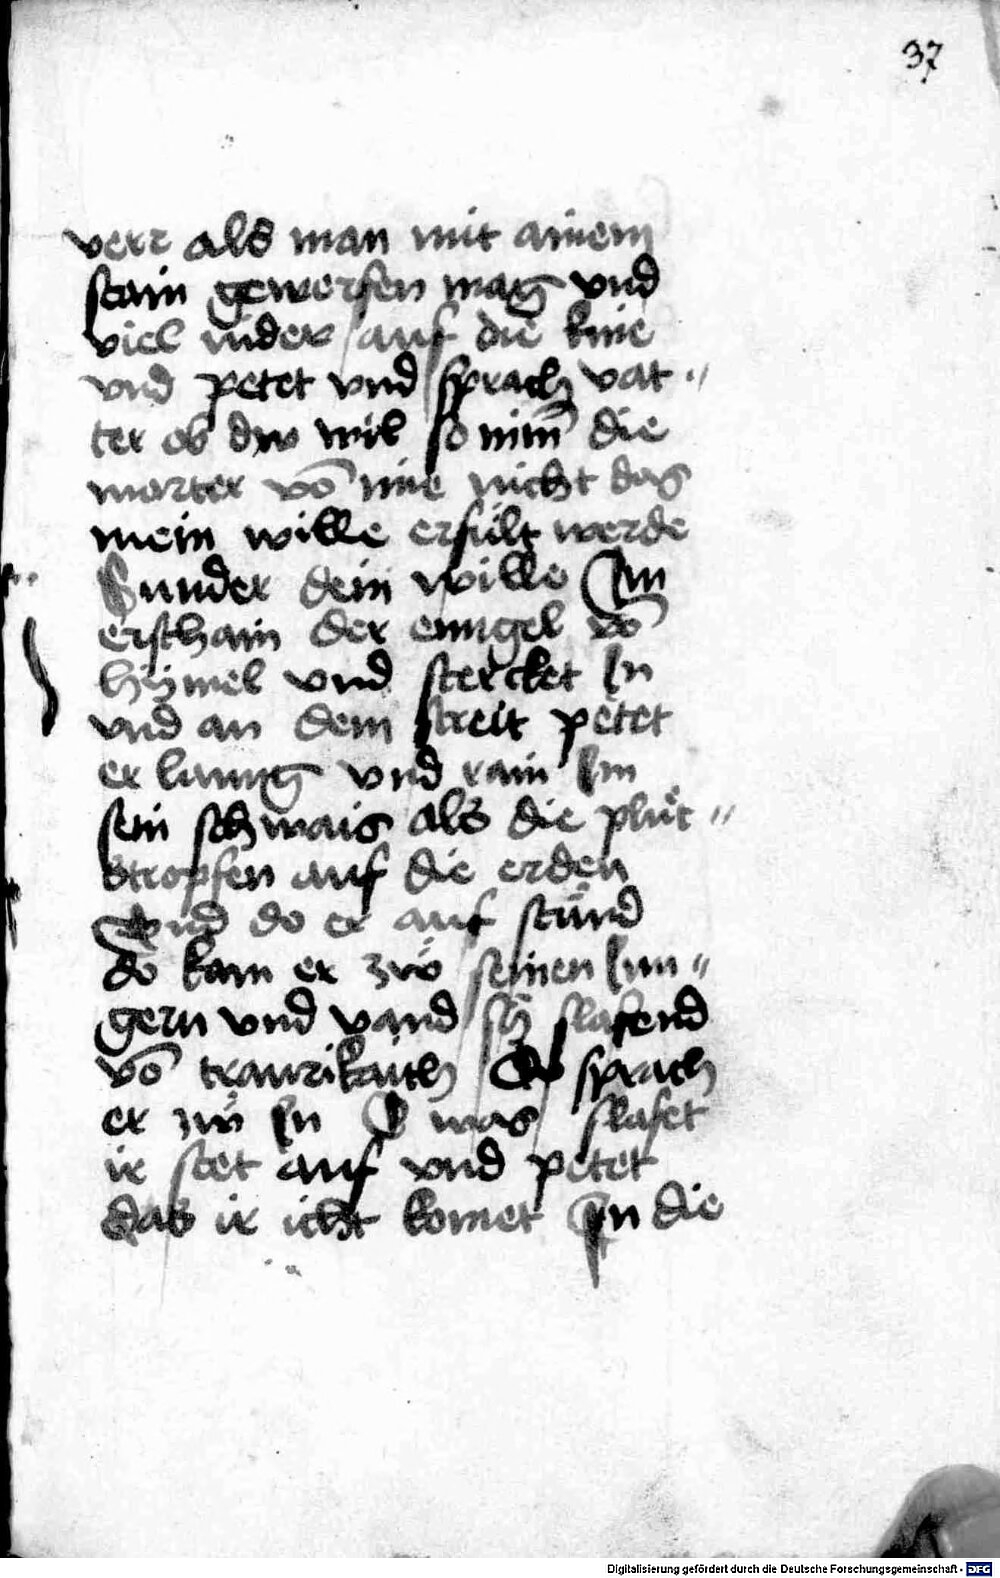 37
verr als man mit ainem
stain gewerfen mag und
viel nider auf die knie
vnd petet vnd sprach vat〃
ter ob dw wil so nim̄ die
marter vō mir nicht das
mein wille erfült werde
Sunder dein wille Im
erschain der enngel vō
hÿmel vnd stercket In
vnd an dem streit petet
er lanng vnd rain Im
sein schwais als die plůt〃
stropfen auf die erden
Vnd do er auf stůnd
do kam er zwo seinen Iun〃
gern vnd vand sÿ slafend
vō traurikaith Do sprach
er zw In O was slafet
ir stet auf vnd petet
das ir icht komet In die
Digitalisierung gefördert durch die Deutsche Forschungsgemeinschaft - DFG